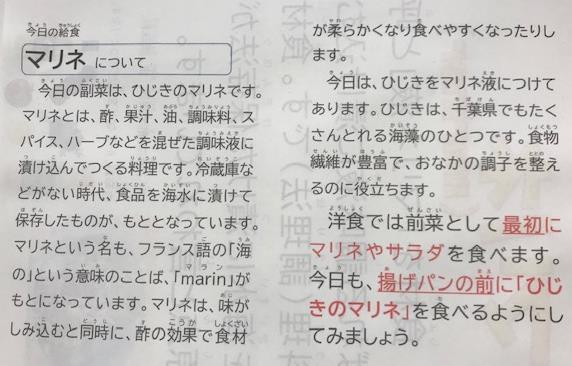 今日の給食
マリネ について
今日の副菜は、ひじきのマリネです。
マリネとは、酢、果汁、油、調味料、ス
パイス、ハーブなどを混ぜた調味液に
漬け込んでつくる料理です。冷蔵庫な
どがない時代、食品を海水に漬けて
保存したものが、もととなっています。
マリネという名も、フランス語の「海
の」という意味のことば、「marin」が
もとになっています。マリネは、味が
しみ込むと同時に、酢の効果で食材
が柔らかくなり食べやすくなったりし
ます。
今日は、ひじきをマリネ液につけて
あります。ひじきは、千葉県でもたく
さんとれる海藻のひとつです。食物
繊維が豊富で、おなかの調子を整え
るのに役立ちます。
洋食では前菜として最初に
マリネやサラダを食べます。
今日も、揚げパンの前に「ひじ
きのマリネ」を食べるようにし
てみましょう。